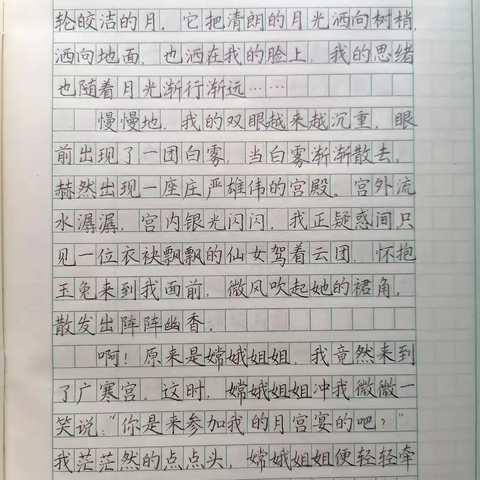 轮皎洁的月，它把清朗的月光洒向树梢，
洒向地面，也洒在我的脸上，我的思绪
也随着月光渐行渐远……
慢慢地，我的双眼越来越沉重，眼
前出现了一团白雾，当白雾渐渐散去，
赫然出现一座庄严雄伟的宫殿，宫外流
水潺潺，宫内银光闪闪，我正疑惑间只
见一位衣袂飘飘的仙女驾着云团，怀抱
玉兔来到我面前，微风吹起她的裙角，
散发出阵阵幽香。
啊！原来是嫦娥姐姐，我竟然来到
了广寒宫，这时，嫦娥姐姐冲我微微一
笑说：“你是来参加我的月宫宴的吧？”
我茫茫然的点点头，嫦娥姐姐便轻轻牵